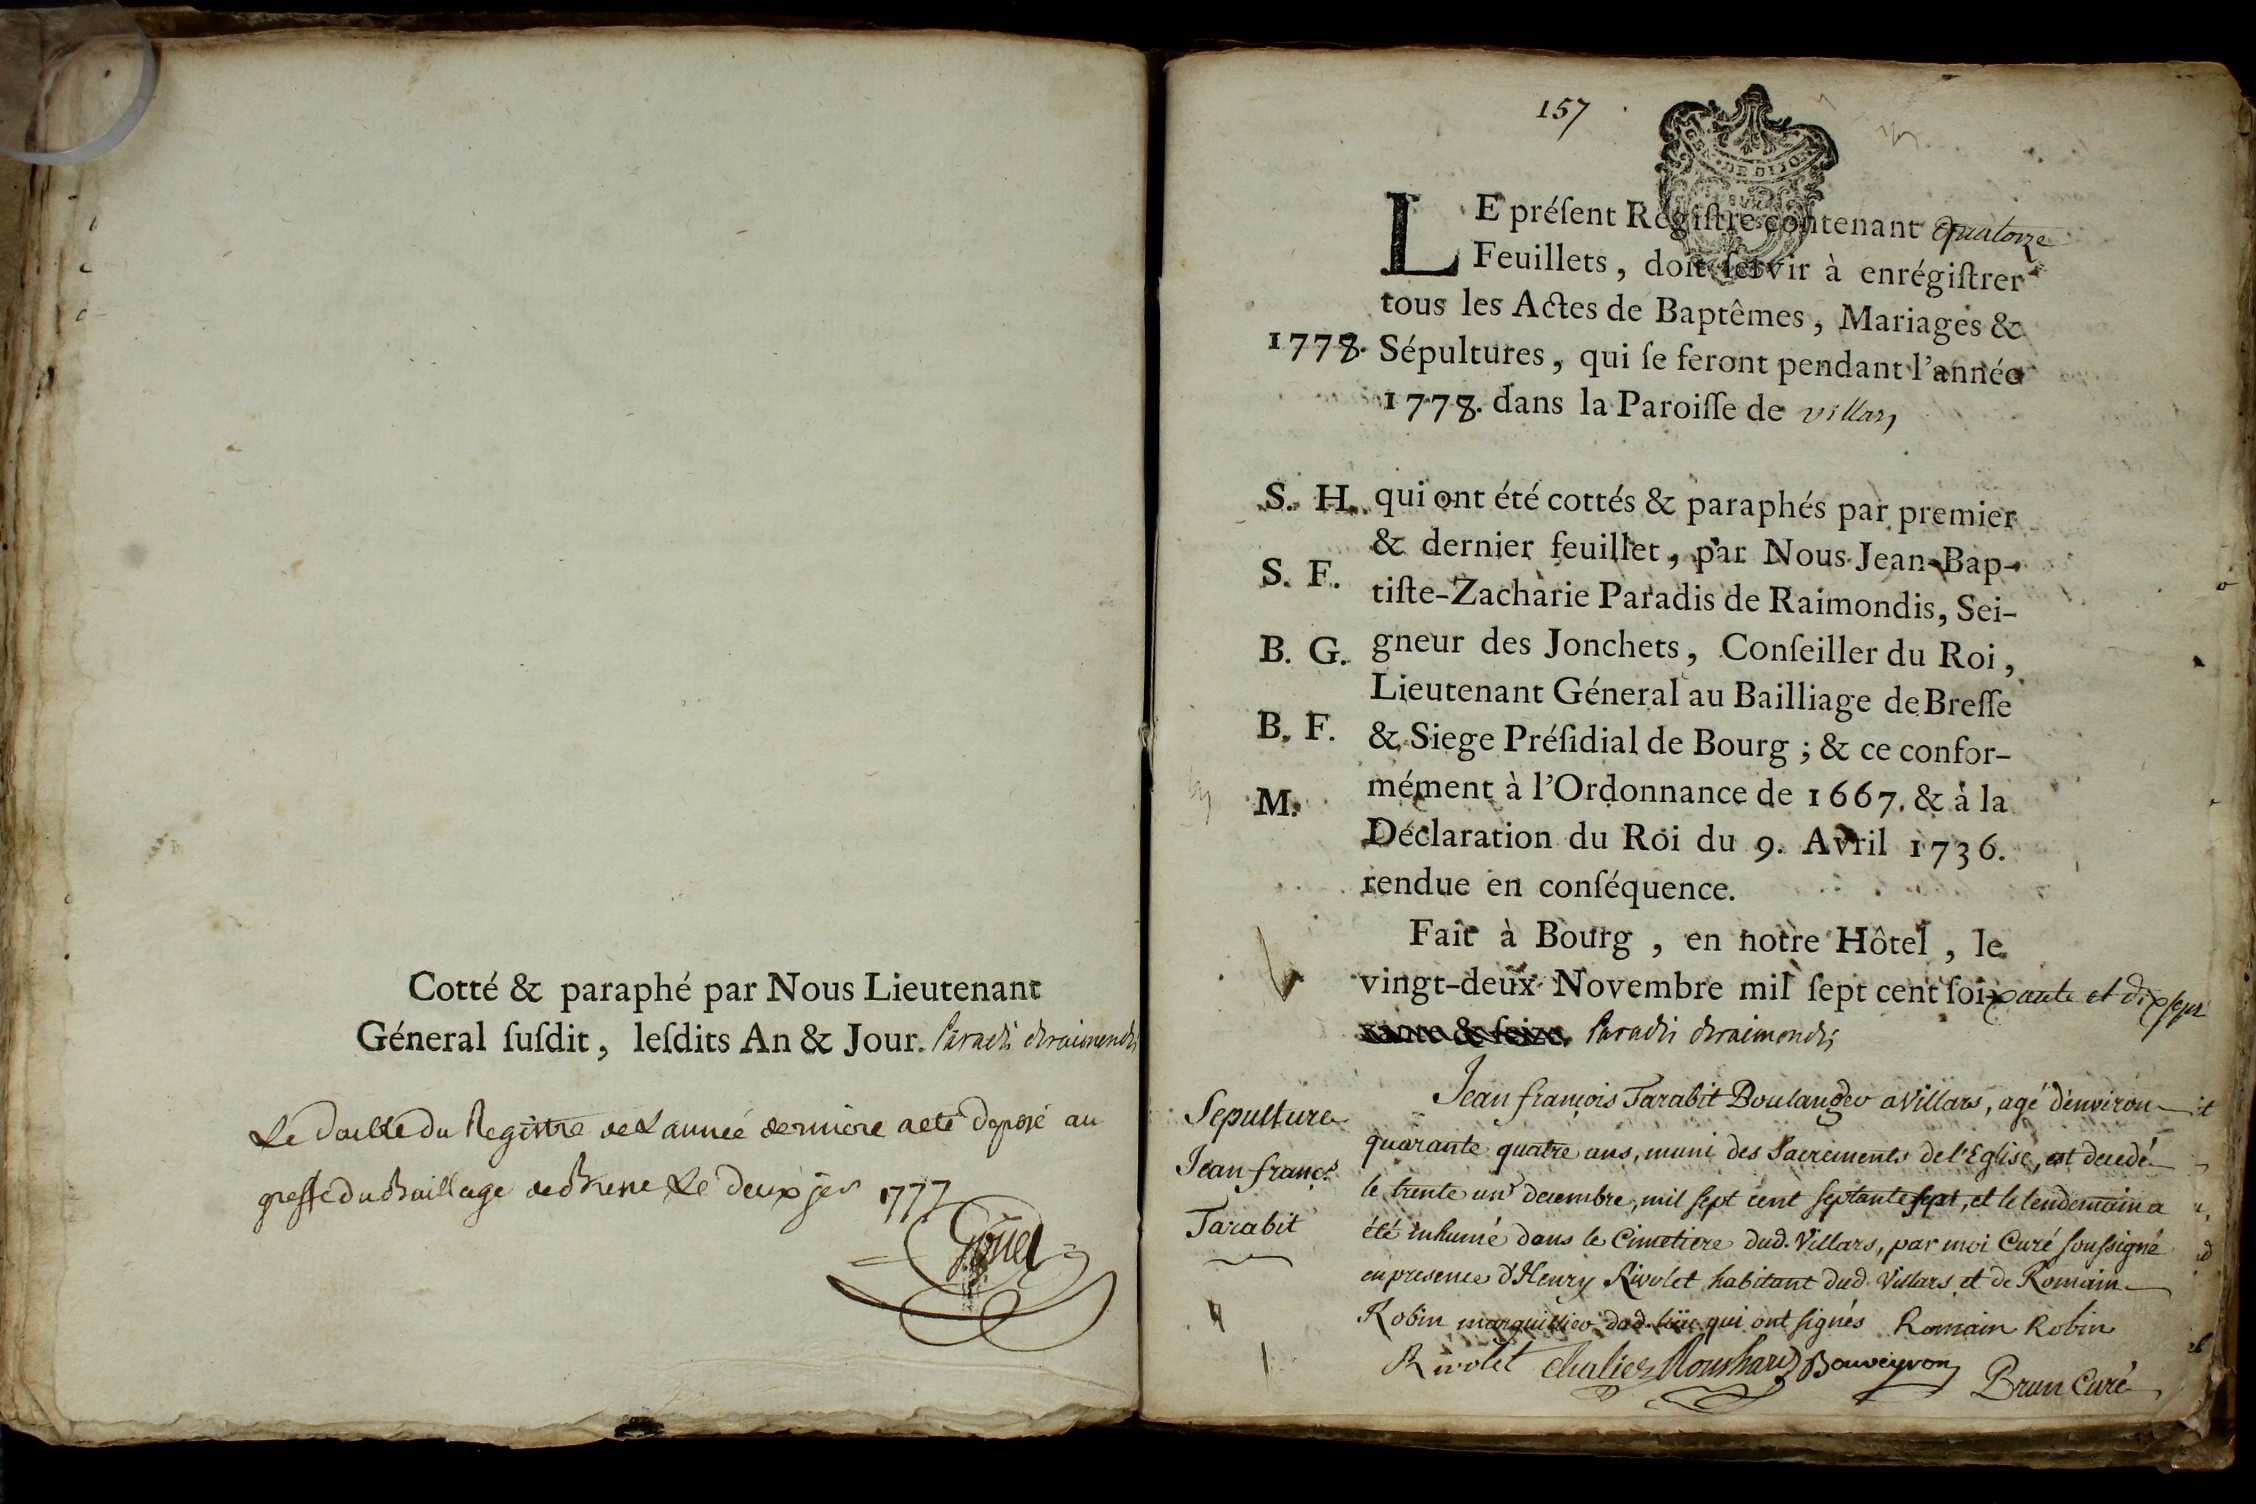 Cotté & paraphé par Nous Lieutenant
Géneral ſuſdit, leſdits An & Jour. Paradis deraimondis
Le double du Registre de L'année derniere a eté deposé au
greffe du Bailliage de Bresse Le deux jer 1777
157
GEN. DE DIJON
LE préſent Regiſtre contenant quatorze
Feuillets, doit ſervir à enrégiſtrer
tous les Actes de Baptêmes, Mariages &
1778. Sépultures, qui ſe feront pendant l'année
1778. dans la Paroiſſe de villars
S. H. qui ont été cottés & paraphés par premier
& dernier feuillet, par Nous Jean-Bap-
S. F. tiſte-Zacharie Paradis de Raimondis, Sei-
B. G. gneur des Jonchets, Conſeiller du Roi,
Lieutenant Géneral au Bailliage de Breſſe
B. F. & Siege Préſidial de Bourg; & ce confor-
M. mément à l'Ordonnance de 1667. & à la
Déclaration du Roi du 9. Avril 1736.
rendue en conſéquence.
Fait à Bourg, en notre Hôtel, le
vingt-deux Novembre mil ſept cent ſoixante et dixsept
xante & ſeize. Paradis deraimondis
Sepulture
Jean franç.s
Tarabit
Jean françois Tarabit Boulanger a Villars, agé d'environ
quarante quatre ans, muni des Sacrements de l'Eglise, est decedé
le trente un decembre, mil sept cent septante sept, et le lendemain a
été inhumé dans le Cimetiere dud. Villars, par moi Curé soussigné
en presence d'Henry Rivolet habitant dud. Villars et de Romain
Robin marguillier dud. lieu qui ont signés Romain Robin
Rivolet Chaliez Bouveyron
Brun Curé